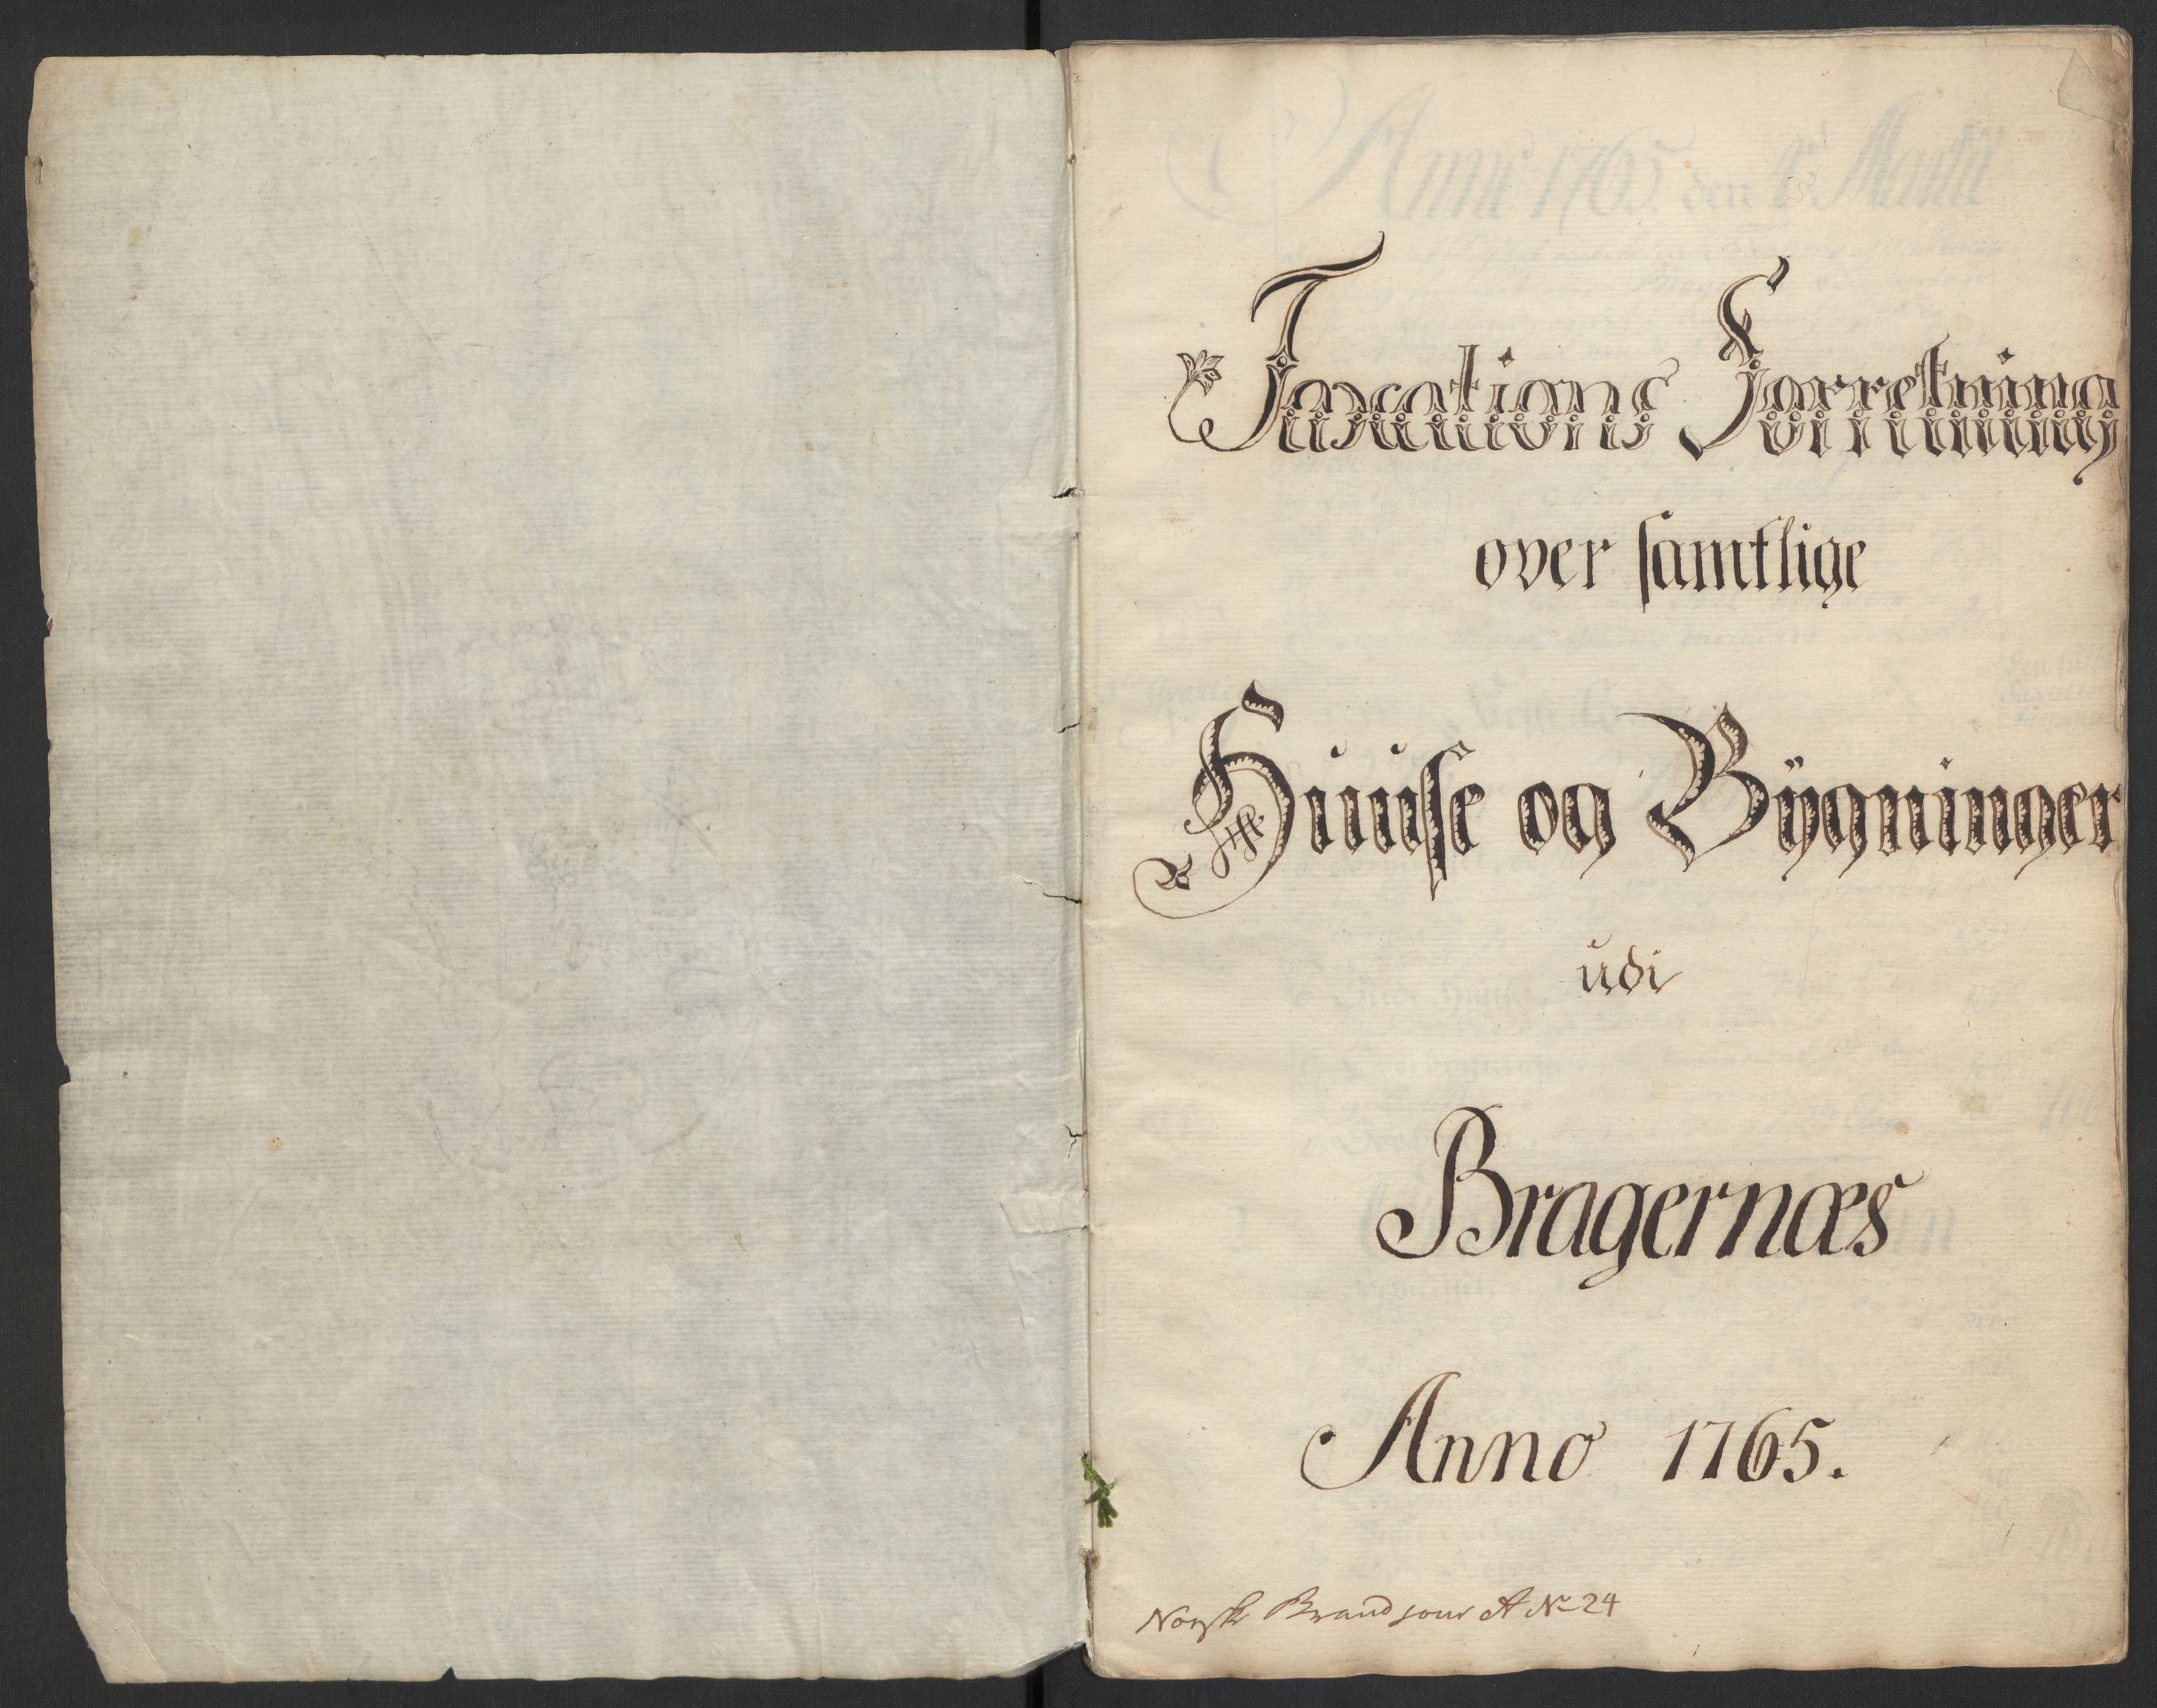 Taxations Forretning
over samtlige
Huuse og Bÿgninger
udi
Bragernæs
Anno 1765.
Norske Brand jour A No 24